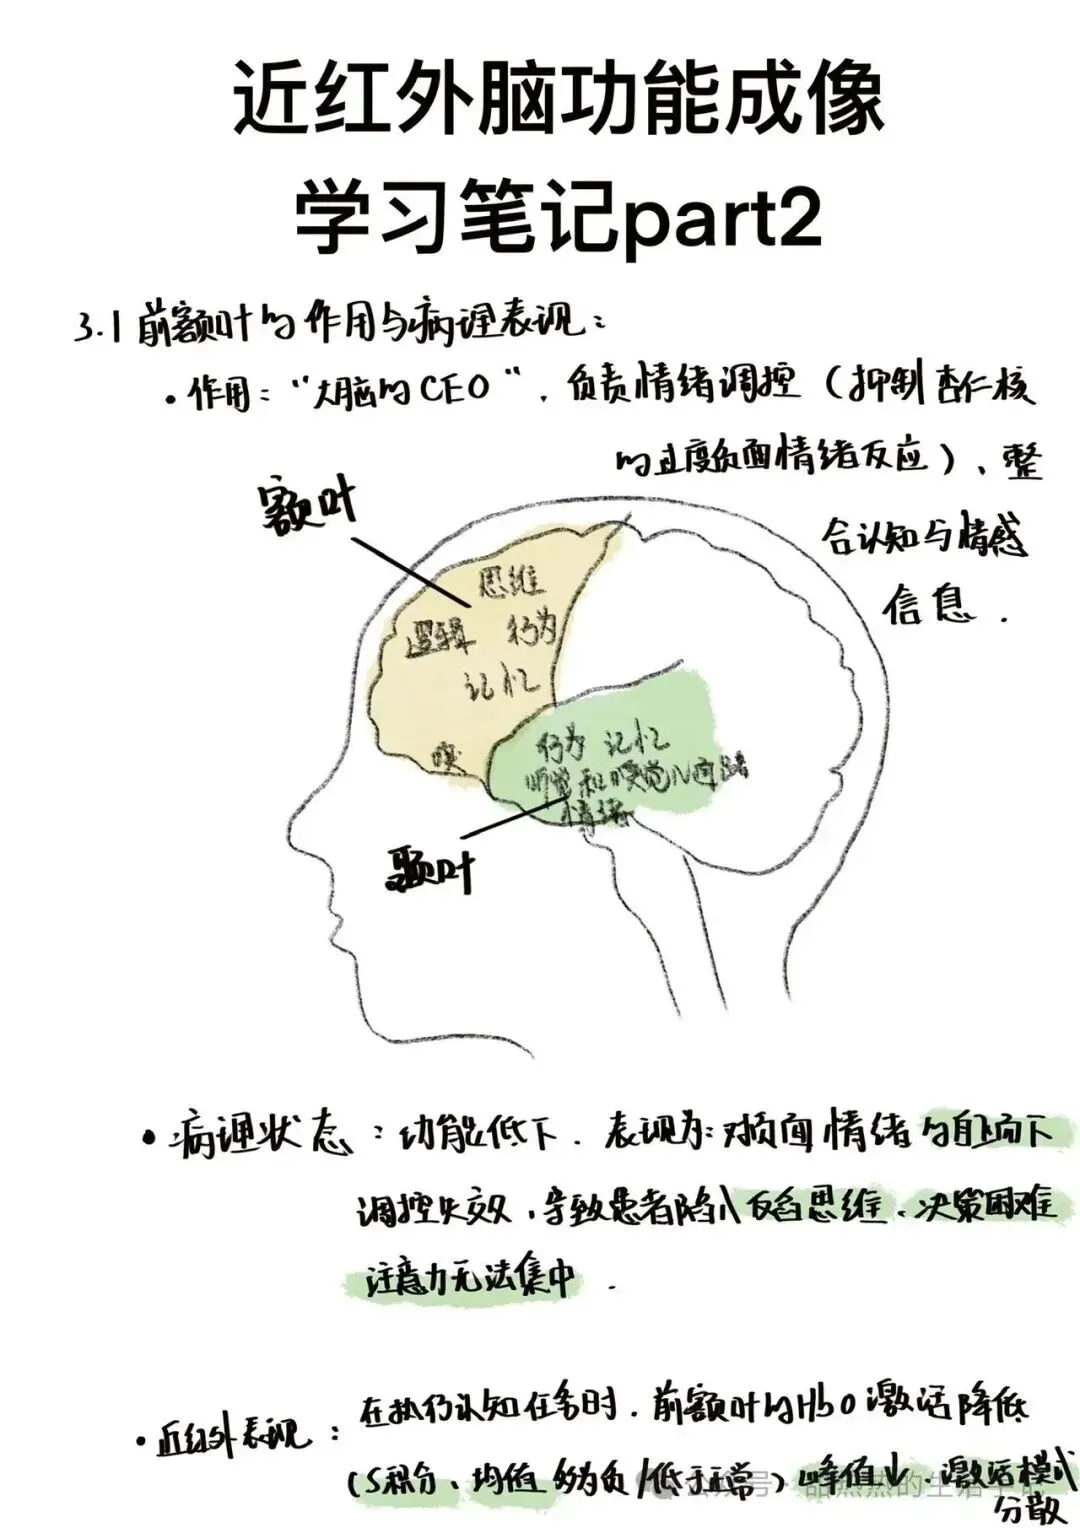 近红外脑功能成像
学习笔记part2
3.1 前额叶的作用与病理表现：
• 作用：“大脑的CEO”，负责情绪调控（抑制杏仁核
的过度负面情绪反应）、整
合认知与情感
信息．
额叶
思维
逻辑 行为
记忆
嗅
行为 记忆
听觉和嗅觉通路
情绪
颞叶
• 病理状态：功能低下．表现为：对负面情绪的自上向下
调控失效，导致患者陷入反刍思维、决策困难
注意力无法集中．
• 近红外表现：在执行认知任务时．前额叶的HbO激活降低
（S积分、均值 多为负/低于正常）峰值↓．激活模式
分散
公众号·
的生活